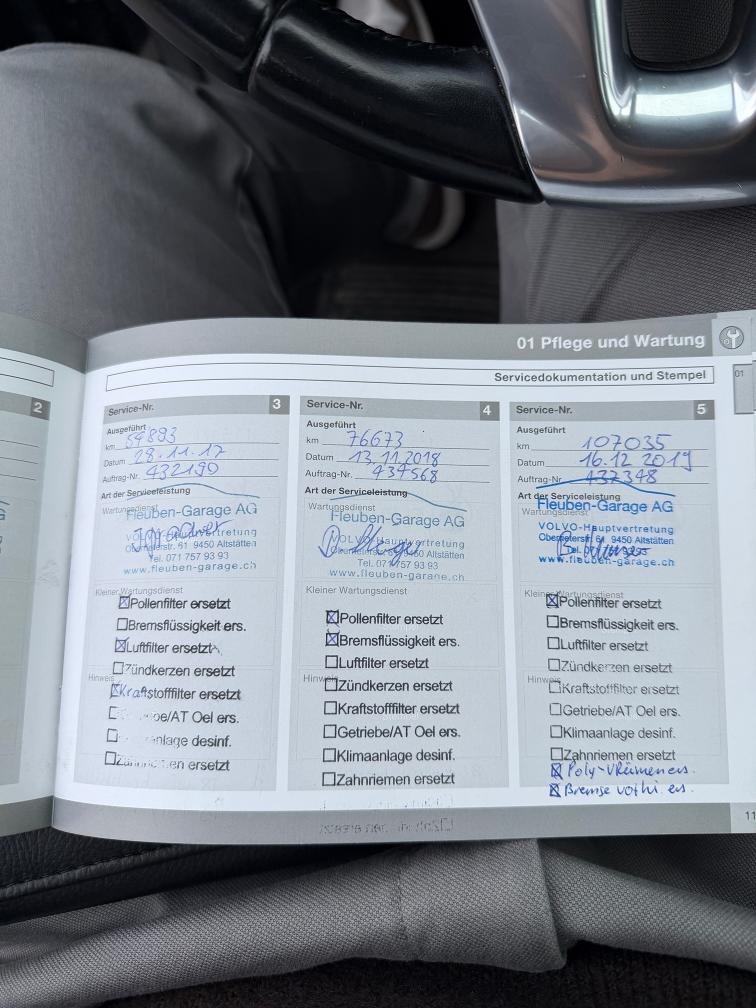 01 Pflege und Wartung
Servicedokumentation und Stempel
01
2
Service-Nr. 3
Ausgeführt
km 59893
Datum 28.11.17
Auftrag-Nr. 432190
Art der Serviceleistung
Wartungsdienst
Fleuben-Garage AG
VOLVO-Hauptvertretung
Oberrieterstr. 61 9450 Altstätten
Tel. 071 757 93 93
www.fleuben-garage.ch
Kleiner Wartungsdienst
☒Pollenfilter ersetzt
☐Bremsflüssigkeit ers.
☒Luftfilter ersetzt
☐Zündkerzen ersetzt
Hinweis
☒Kraftstofffilter ersetzt
☐ be/AT Oel ers.
☐ anlage desinf.
☐Zahnriemen ersetzt
Service-Nr. 4
Ausgeführt
km 76673
Datum 13.11.2018
Auftrag-Nr. 434568
Art der Serviceleistung
Wartungsdienst
Fleuben-Garage AG
VOLVO-Hauptvertretung
Oberrieterstr. 61 9450 Altstätten
Tel. 071 757 93 93
www.fleuben-garage.ch
Kleiner Wartungsdienst
☒Pollenfilter ersetzt
☒Bremsflüssigkeit ers.
☐Luftfilter ersetzt
Hinweis
☐Zündkerzen ersetzt
☐Kraftstofffilter ersetzt
☐Getriebe/AT Oel ers.
☐Klimaanlage desinf.
☐Zahnriemen ersetzt
Service-Nr. 5
Ausgeführt
km 107035
Datum 16.12 2019
Auftrag-Nr. 437348
Art der Serviceleistung
Wartungsdienst
Fleuben-Garage AG
VOLVO-Hauptvertretung
Oberrieterstr. 61 9450 Altstätten
Tel. 071 757 93 93
www.fleuben-garage.ch
Kleiner Wartungsdienst
☒Pollenfilter ersetzt
☐Bremsflüssigkeit ers.
☐Luftfilter ersetzt
☐Zündkerzen ersetzt
Hinweis
☐Kraftstofffilter ersetzt
☐Getriebe/AT Oel ers.
☐Klimaanlage desinf.
☐Zahnriemen ersetzt
☒ Poly-VRiemen ers.
☒ Bremse vo+hi ers.
11